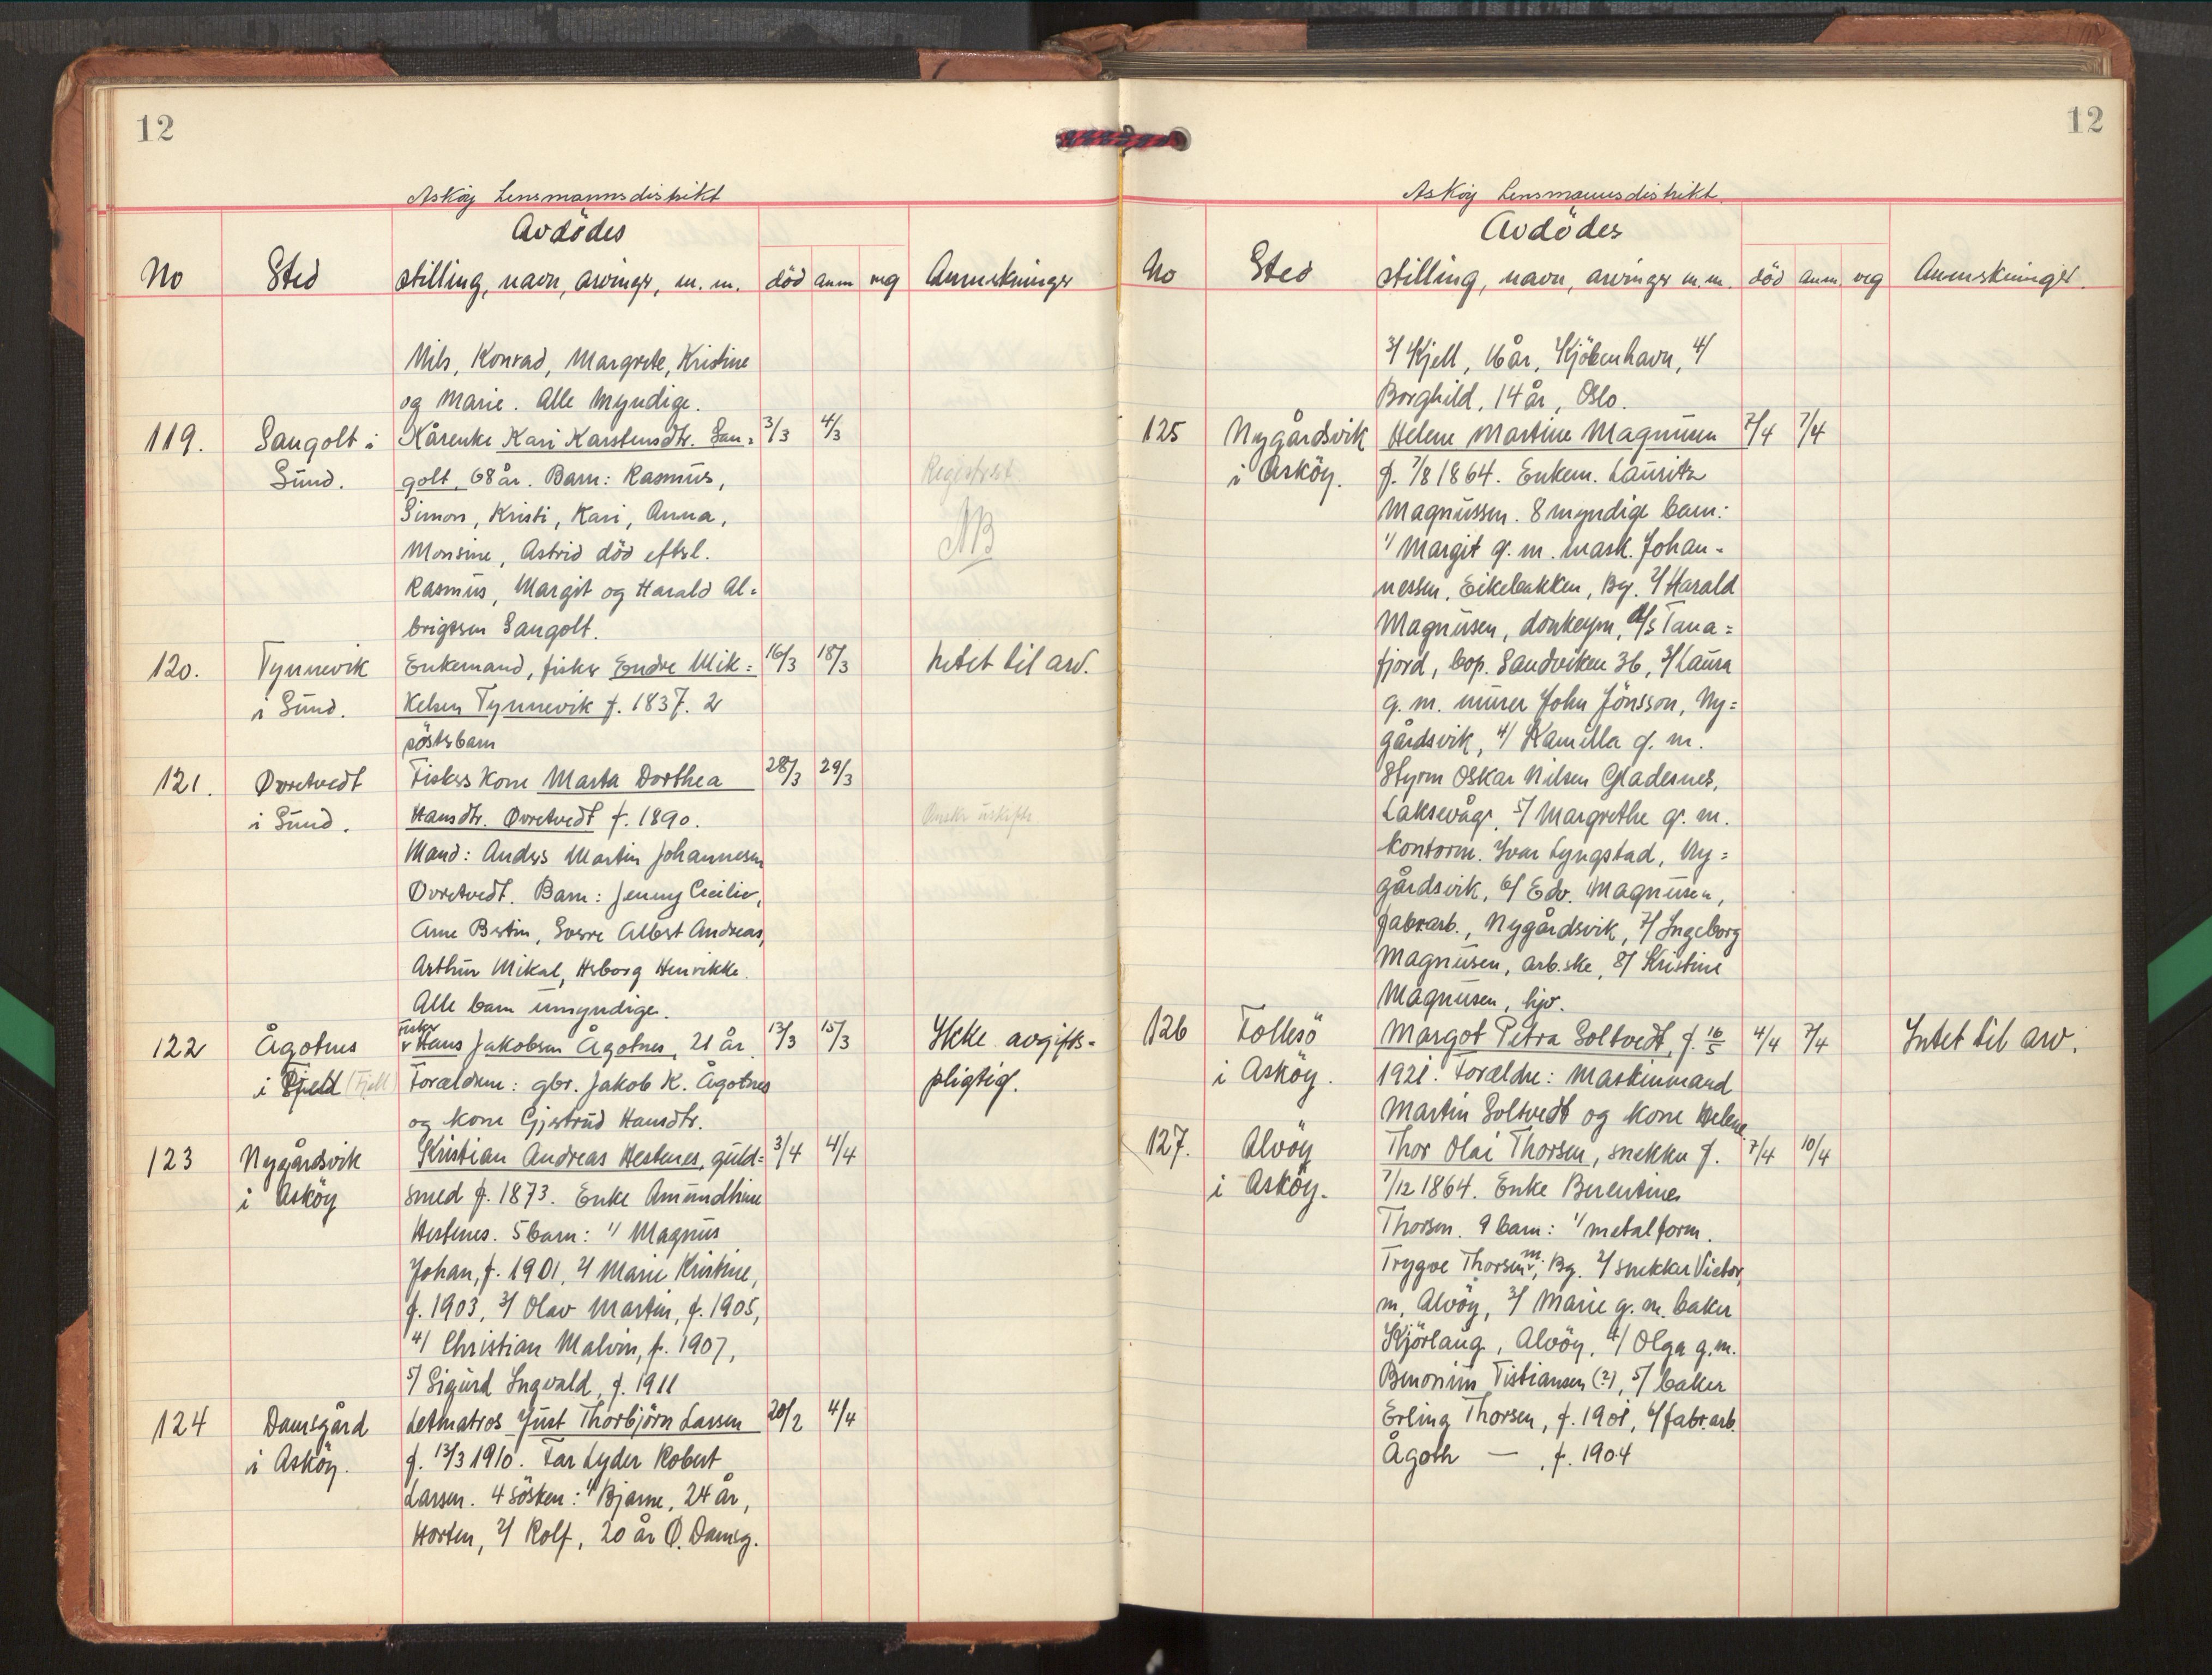 12
Askøy Lensmannsdistrikt
Avdödes
No Sted stilling, navn, arvinger, m. m. död anm reg Anmerkninger
Nils, Konrad, Margrete, Kristine
og Marie. Alle myndige.
119. Sangolt i Kårenke Kari Karstensdtr. San- 3/3 4/3
Sund. golt, 68 år. Barn: Rasmus, Registrert
Simon, Kristi, Kari, Anna, AB
Monsine, Astrid död efterl.
Rasmus, Margit og Harald Al-
brigtsen Sangolt.
120. Tynnevik Enkemand, fisker Endre Mik- 16/3 18/3 Intet til arv.
i Sund. kelsen Tynnevik f. 1837. 2
sösterbarn
121. Ovretvedt Fiskers kone Marta Dorthea 28/3 29/3
i Sund. Hansdtr. Ovretvedt f. 1890. Ønsker uskifte
Mand: Anders Martin Johannesen
Ovretvedt. Barn: Jenny Cecilie,
Arne Bertin, Sverre Albert Andreas,
Arthur Mikal, Herborg Henrikke.
Alle barn umyndige.
122 Ågotnes fisker Hans Jakobsen Ågotnes, 21 år 13/3 15/3 Ikke avgifts-
i Fjeld (Fjell) Forældrene: gbr. Jakob K. Ågotnes pligtig.
og kone Gjertrud Hansdtr.
123 Nygårdsvik Kristian Andreas Hestenes, guld- 3/4 4/4
i Asköy smed f. 1873. Enke Amundhine
Hestenes. 5 barn: 1/ Magnus
Johan, f. 1901, 2/ Marie Kristine,
f. 1903, 3/ Olav Martin, f. 1905,
4/ Christian Malvin, f. 1907,
5/ Sigurd Ingvald, f. 1911
124 Damsgård Letmatros Just Thorbjörn Larsen 20/2 4/4
i Asköy. f. 13/3 1910. Far Lyder Robert
Larsen. 4 sösken: 1/ Bjarne, 24 år,
Horten, 2/ Rolf, 20 år Ø. Damsg.
12
Askøy Lensmannsdistrikt
Avdödes
No Sted stilling, navn, arvinger m.m. död anm. reg Anmerkninger.
3/ Kjell, 16 år, Kjöbenhavn, 4/
Borghild, 14 år, Oslo.
125 Nygårdsvik Helene Martine Magnusen 7/4 7/4
i Asköy. f. 7/8 1864. Enkem. Lauritz
Magnussen. 8 myndige barn:
1/ Margit g. m. mask. Johan-
nessen, Eikebakken, Bg. 2/ Harald
Magnusen, donkeym, d/s Tana-
fjord, bop. Sandviken 36, 3/ Laura
g. m. murer John Jönsson, Ny-
gårdsvik, 4/ Kamilla g. m.
Styrm Oskar Nilsen Gladesnes,
Laksevåg, 5/ Margrethe g. m.
kontorm. Ivar Lyngstad, Ny-
gårdsvik, 6/ Edv. Magnusen,
fabr.arb., Nygårdsvik, 7/ Ingeborg
Magnusen, arb.ske, 8/ Kristine
Magnusen, hjv.
126 Follesö Margot Petra Soltvedt, f. 16/5 4/4 7/4 Intet til arv.
i Asköy. 1921. Forældre: Maskinmand
Martin Soltvedt og kone Helene
127. Alvöy Thor Olai Thorsen, snekker f. 7/4 10/4
i Asköy. 7/12 1864. Enke Berentine
Thorsen. 9 barn: 1/ metalform.
Trygve Thorsen, m, Bg. 2/ snekker Victor,
m, Alvöy, 3/ Marie g. m. baker
Kjörlaug, Alvöy, 4/ Olga g.m.
Benonius Tistiansen (?), 5/ baker
Erling Thorsen, f. 1901, 6/ fabr.arb.
Ågoth — , f. 1904